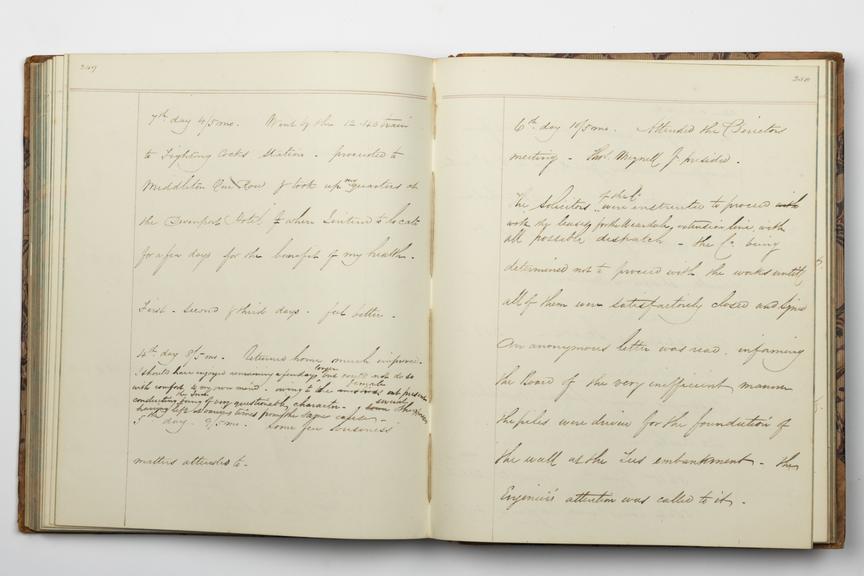 7th day 4/5 mo. Went by the 12.40 train
to Fighting Cocks Station. proceeded to
Middleton One Row & took up my quarters at
the Devonport Hotel, where I intend to locate
for a few days for the benefit of my health.
First - Second & third days - feel better -
4th day 8/5 mo. Returned home much improved.
I should have enjoyed remaining a few days longer, but could not do so
with comfort to my own mind - owing to the female at present
conducting the Inn being of very questionable character -
having left the same cause -
5th day 9/5 mo. Some few business
matters attended to -
6th day 10/5 mo. Attended the Directors
meeting - Thos. Meynell Jr presided.
The Solicitors of the Co. were instructed to proceed with
the leases for the Weardale extension line, with
all possible despatch - the Co. being
determined not to proceed with the works until
all of them were satisfactorily closed and signed
An anonymous letter was read, informing
the Board of the very inefficient manner
the piles were driven for the foundation of
the wall at the Tees embankment - the
Engineer's attention was called to it -